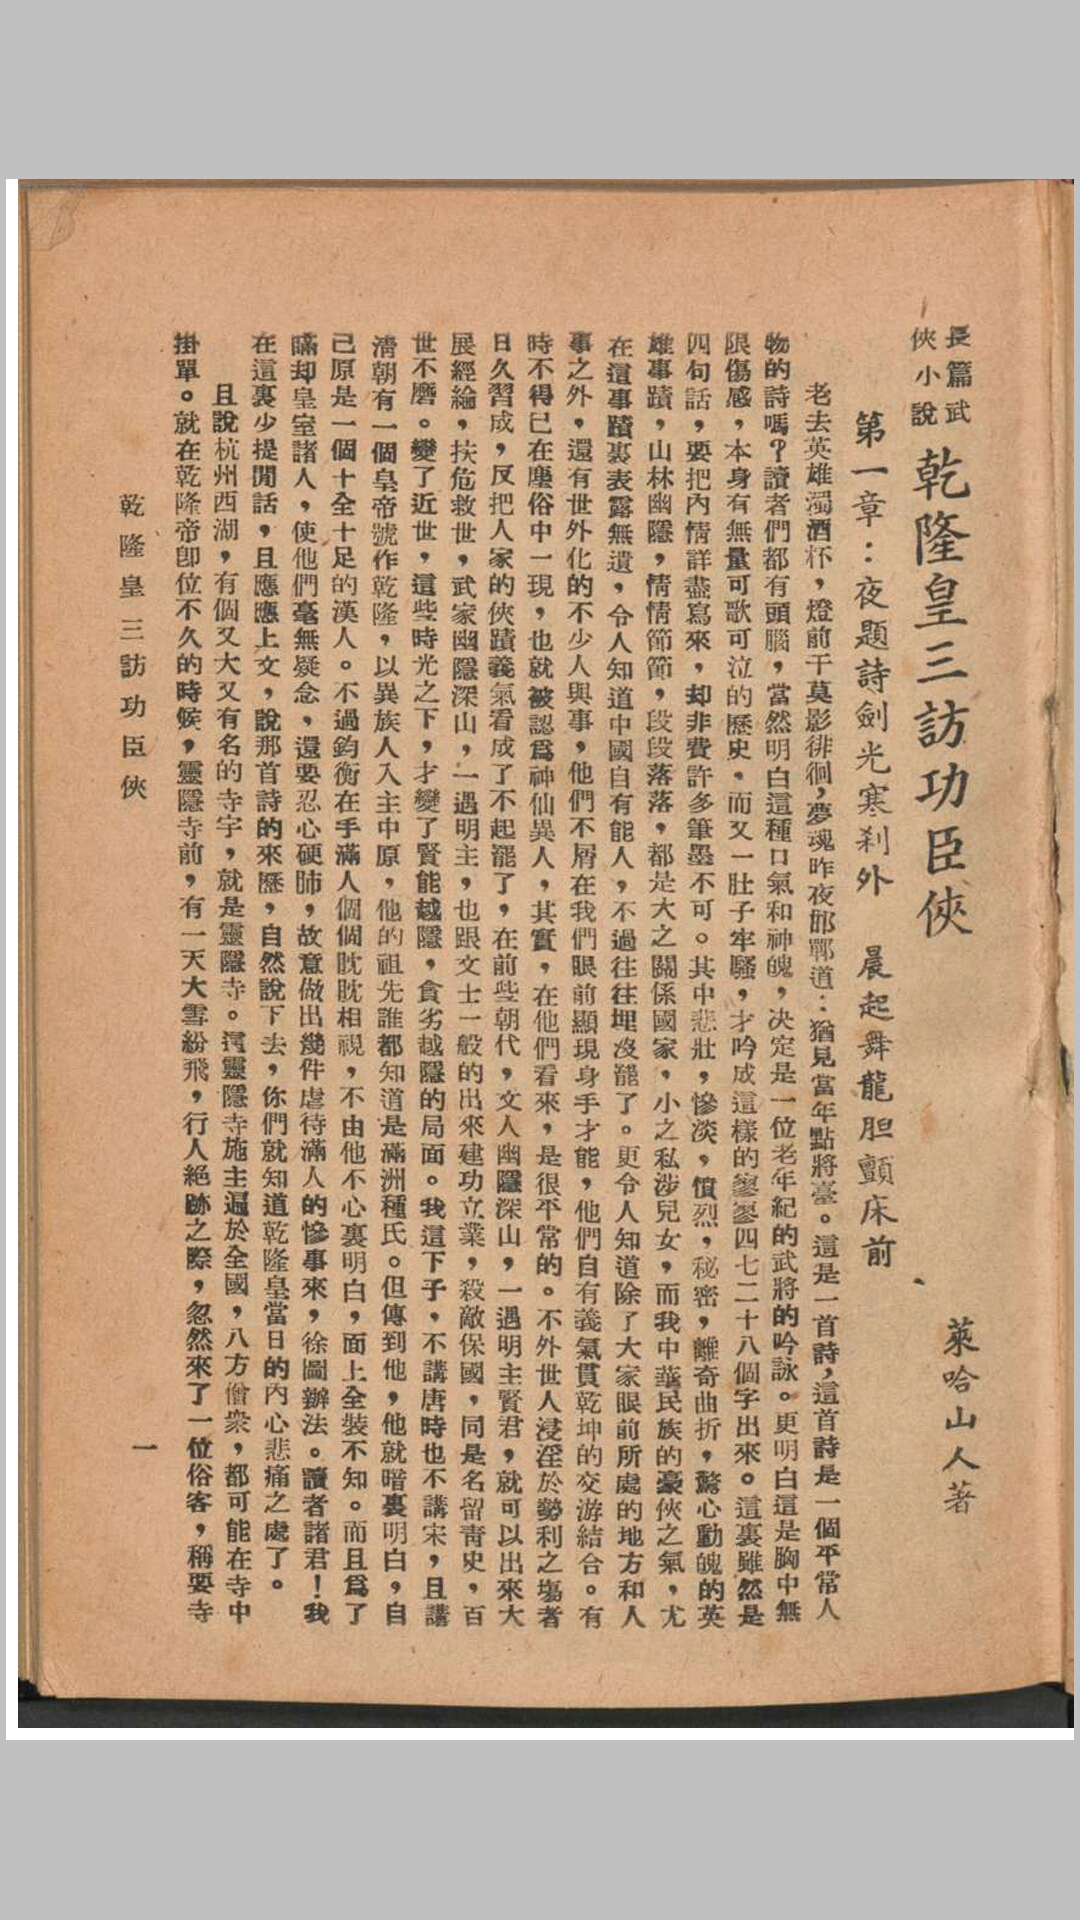 長篇武
俠小說
乾隆皇三訪功臣俠
萊哈山人著
第一章：夜題詩劍光寒刹外　晨起舞龍胆顫床前
老去英雄濁酒杯，燈前干莫影徘徊，夢魂昨夜邯鄲道：猶見當年點將臺。這是一首詩，這首詩是一個平常人
物的詩嗎？讀者們都有頭腦，當然明白這種口氣和神魄，决定是一位老年紀的武將的吟詠。更明白這是胸中無
限傷感，本身有無量可歌可泣的歷史，而又一肚子牢騷，才吟成這樣的寥寥四七二十八個字出來。這裏雖然是
四句話，要把內情詳盡寫來，却非費許多筆墨不可。其中悲壯，慘淡，憤烈，秘密，離奇曲折，驚心動魄的英
雄事蹟，山林幽隱，情情節節，段段落落，都是大之關係國家，小之私涉兒女，而我中華民族的豪俠之氣，尤
在這事蹟裏表露無遺，令人知道中國自有能人，不過往往埋沒罷了。更令人知道除了大家眼前所處的地方和人
事之外，還有世外化的不少人與事，他們不屑在我們眼前顯現身手才能，他們自有義氣貫乾坤的交游結合。有
時不得已在塵俗中一現，也就被認爲神仙異人，其實，在他們看來，是很平常的。不外世人浸淫於勢利之塲者
日久習成，反把人家的俠蹟義氣看成了不起罷了，在前些朝代，文人幽隱深山，一遇明主賢君，就可以出來大
展經綸，扶危救世，武家幽隱深山，一遇明主，也跟文士一般的出來建功立業，殺敵保國，同是名留靑史，百
世不磨。變了近世，這些時光之下，才變了賢能越隱，貪劣越隱的局面。我這下子，不講唐時也不講宋，且講
淸朝有一個皇帝號作乾隆，以異族人入主中原，他的祖先誰都知道是滿洲種氏。但傳到他，他就暗裏明白，自
己原是一個十全十足的漢人。不過鈞衡在手滿人個個眈眈相視，不由他不心裏明白，面上全裝不知。而且爲了
瞞却皇室諸人，使他們毫無疑念，還要忍心硬肺，故意做出幾件虐待滿人的慘事來，徐圖辦法。讀者諸君！我
在這裏少提閒話，且應應上文，說那首詩的來歷，自然說下去，你們就知道乾隆皇當日的內心悲痛之處了。
且說杭州西湖，有個又大又有名的寺宇，就是靈隱寺。這靈隱寺施主遍於全國，八方僧衆，都可能在寺中
掛單。就在乾隆帝卽位不久的時候，靈隱寺前，有一天大雪紛飛，行人絕跡之際，忽然來了一位俗客，稱要寺
乾隆皇三訪功臣俠
一